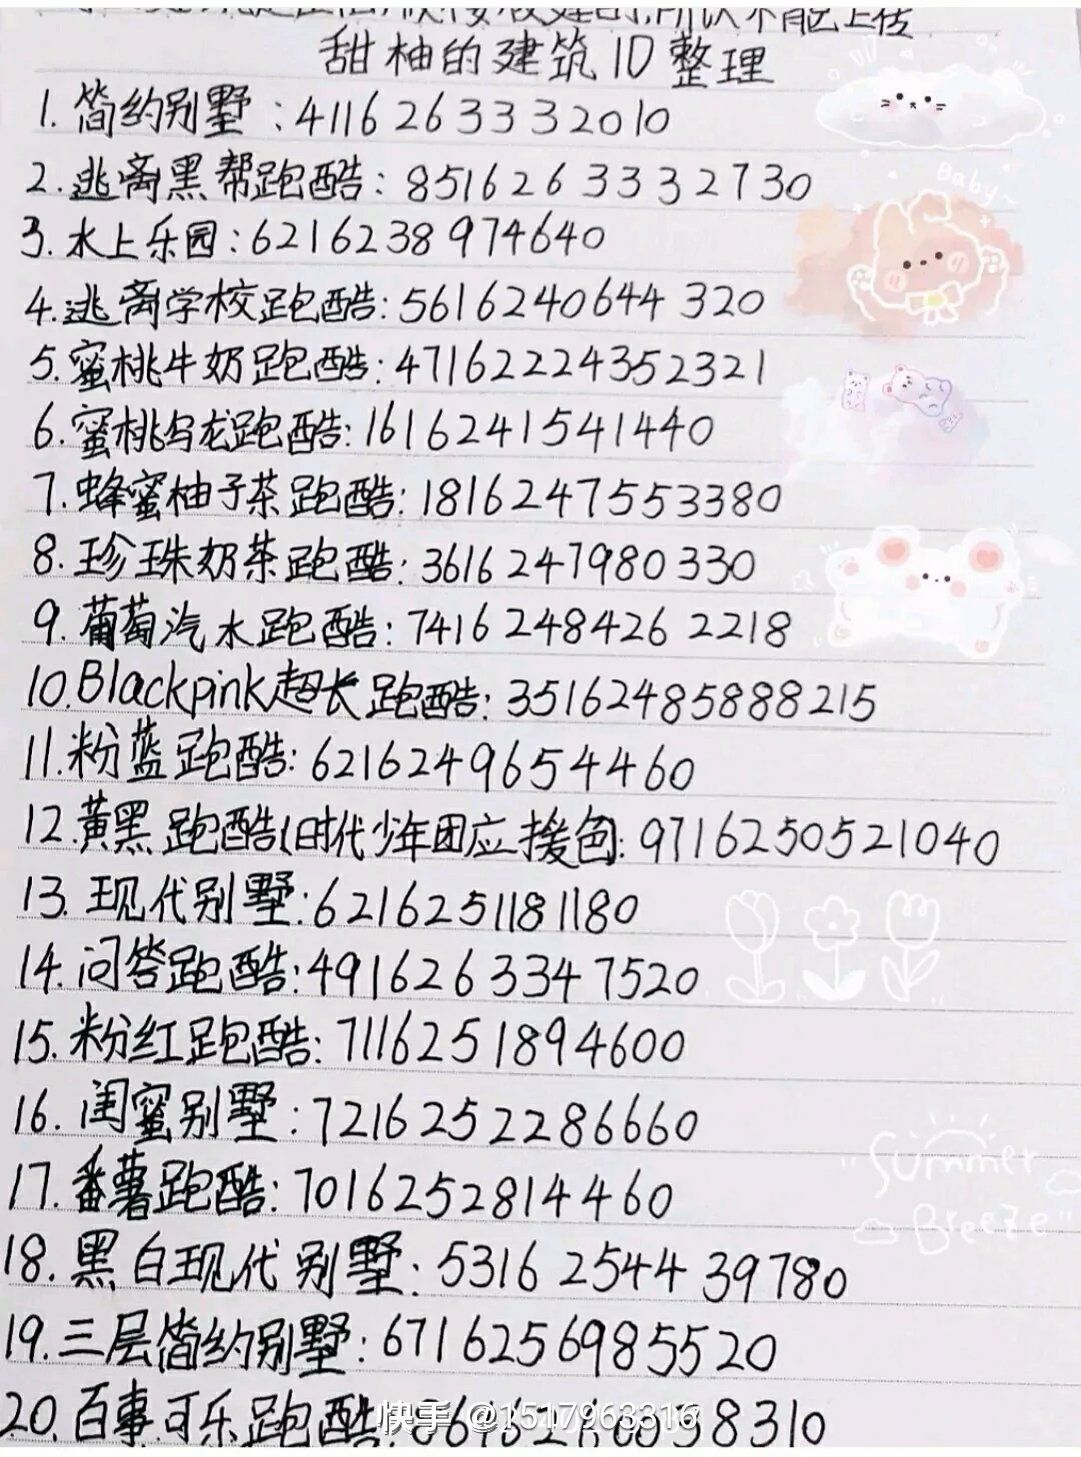 甜柚的建筑ID整理
Baby~
1.简约别墅:4116263332010
2.逃离黑帮跑酷:8516263332730
3.水上乐园:6216238974640
4.逃离学校跑酷:5616240644320
5.蜜桃牛奶跑酷:471622243 52321
6.蜜桃乌龙跑酷:1616241541440
7.蜂蜜柚子茶跑酷:1816247553380
8.珍珠奶茶跑酷:3616247980330
9.葡萄汽水跑酷:74162484262218
10.Blackpink超长跑酷:35162485888215
11.粉蓝跑酷:6216249654460
12.黄黑跑酷(时代少年团应援色:9716250521040
13.现代别墅:6216251181180
14.问答跑酷:4916263347520
15.粉红跑酷:7116251894600
16.闺蜜别墅:7216252286660
17.番薯跑酷:7016252814460
18.黑白现代别墅:5316254439780
19.三层简约别墅:6716256985520
20.百事可乐跑酷:
"Summer
Breeze"
快手 @1517963316